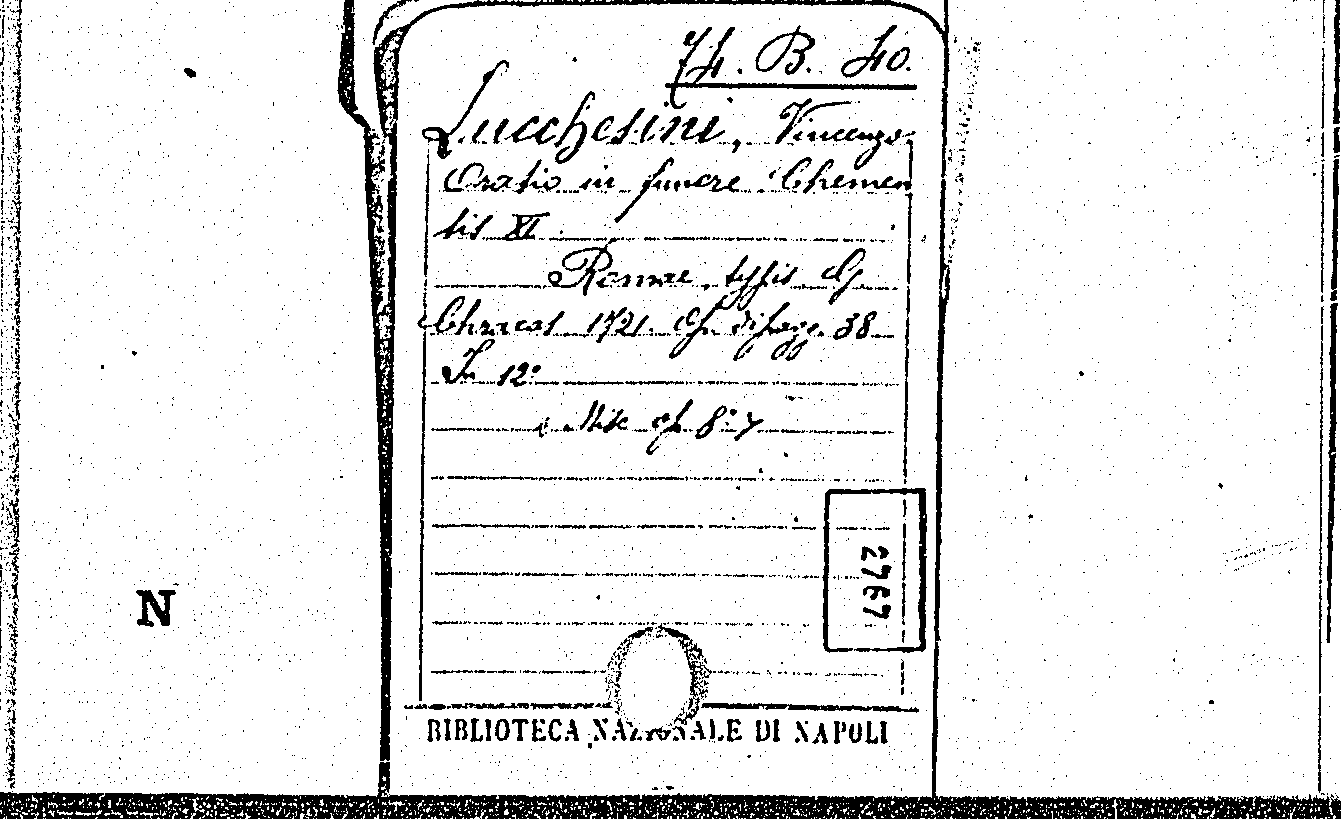 74. B. 40.
Lucchesini, Vincenzo
Oratio in funere Chemen
tis XI.
Romae, typis
Chracas 1721. di pagg. 38
In 12°
Misc 8° 7
2767
N
BIBLIOTECA NAZIONALE DI NAPOLI